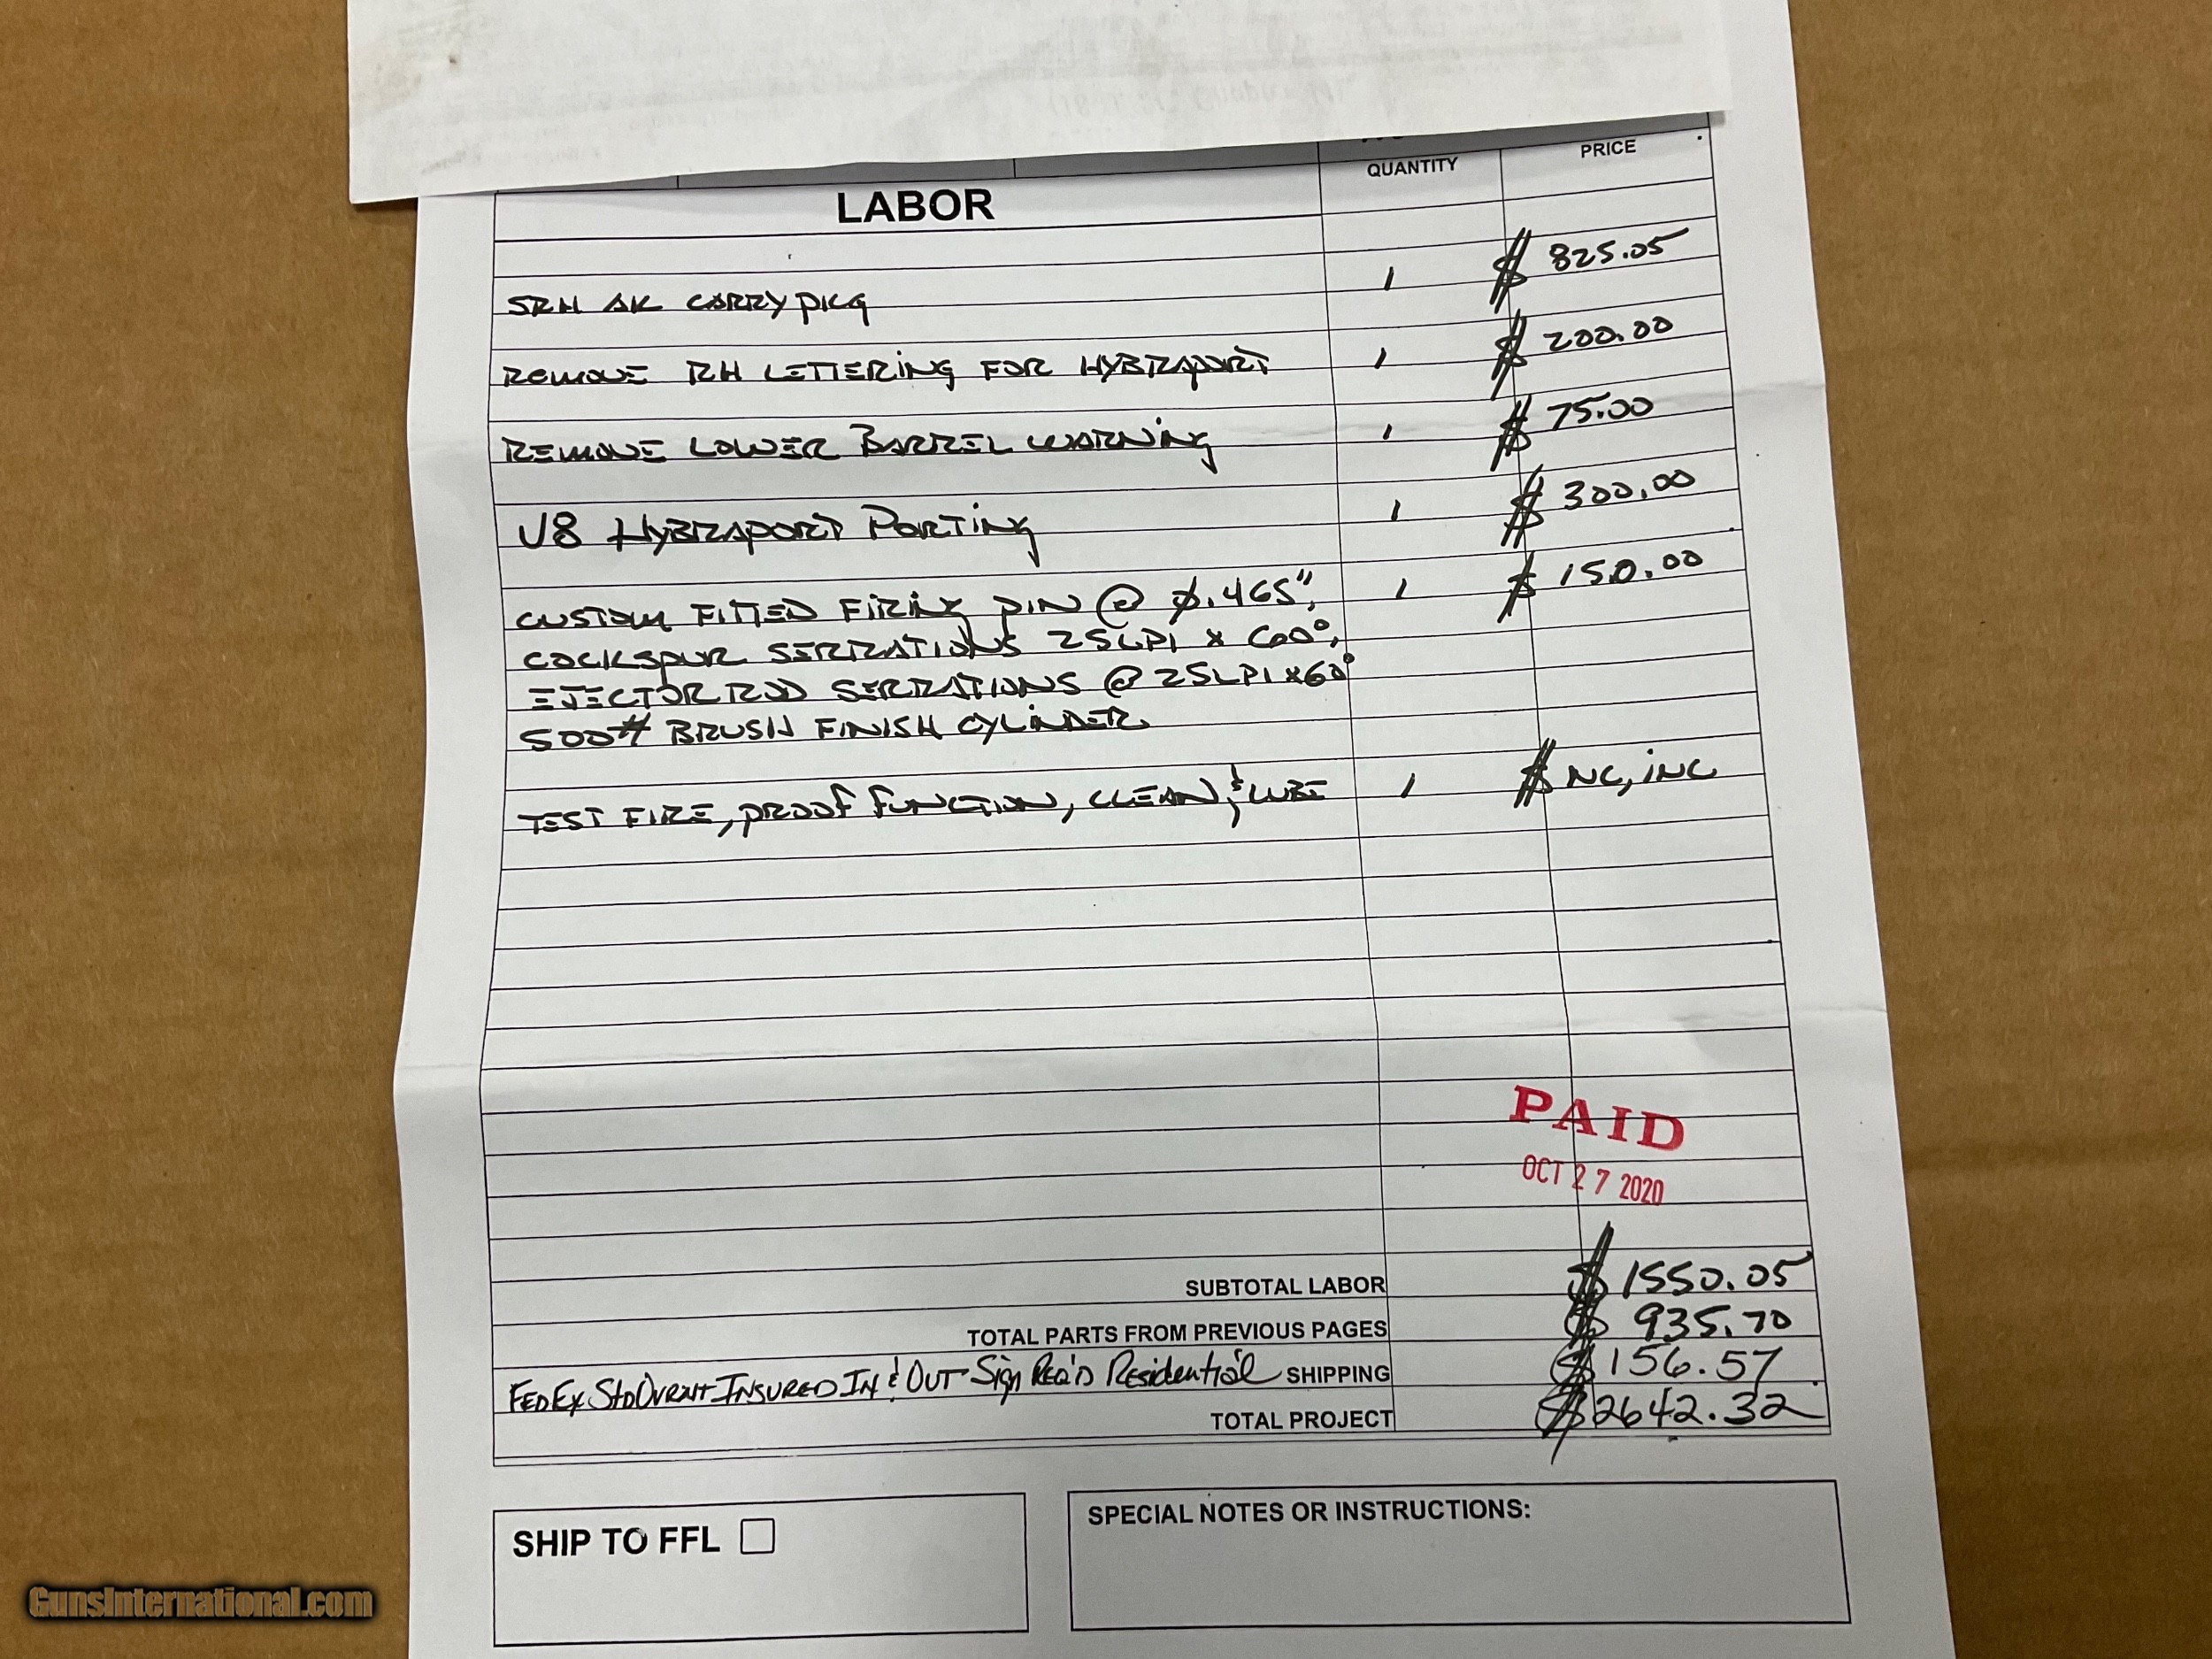 QUANTITY PRICE
LABOR
SRH AK CARRY PKG 1 $ 825.05
REMOVE RH LETTERING FOR HYBRAPORT 1 $ 200.00
REMOVE LOWER BARREL WARNING 1 $ 75.00
V8 HYBRAPORT PORTING 1 $ 300.00
CUSTOM FITTED FIRING PIN @ Ø.465", 1 $ 150.00
COCKSPUR SERRATIONS 25LPI x 60°,
EJECTOR ROD SERRATIONS @ 25LPI x 60°
500# BRUSH FINISH CYLINDER.
TEST FIRE, PROOF FUNCTION, CLEAN, & LUBE 1 $ NC, INC
PAID
OCT 27 2020
SUBTOTAL LABOR $ 1550.05
TOTAL PARTS FROM PREVIOUS PAGES $ 935.70
FEDEX STD OVRNT INSURED IN & OUT - Sign REQ'D Residential SHIPPING $ 156.57
TOTAL PROJECT $ 2642.32
SHIP TO FFL
SPECIAL NOTES OR INSTRUCTIONS:
GunsInternational.com